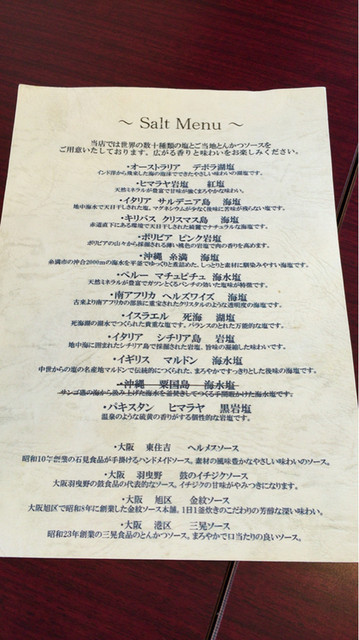 ～ Salt Menu ～
当店では世界の数十種類の塩とご当地とんかつソースを
ご用意いたしております。広がる香りと味わいをお楽しみください。
・オーストラリア デボラ湖塩
インド洋から飛来した海の泡沫でできたやさしい味わいの湖塩です。
・ヒマラヤ岩塩 紅塩
天然ミネラルが豊富で甘味が強くまろやかな味わい。
・イタリア サルデニア島 海塩
地中海水で天日干しされた塩。マグネシウムが少なく後味に苦味が残らない塩です。
・キリバス クリスマス島 海塩
赤道直下にある環境で天日干しされた綺麗でナチュラルな海塩です。
・ボリビア ピンク岩塩
ボリビアの山々から採掘される薄い桃色の岩塩で肉の香りを高めます。
・沖縄 糸満 海塩
糸満市の沖合2000mの海水を平釜でゆっくりと煮詰めた、しっとりと素材に馴染みやすい海塩です。
・ペルー マチュピチュ 海水塩
天然ミネラルが豊富でガツンとくるパンチの効いた塩味が特徴です。
・南アフリカ ヘルズワイズ 海塩
古来より南アフリカの部族に重宝されたクリスタルのような透明度の海塩です。
・イスラエル 死海 湖塩
死海湖の湖水でつくられた貴重な塩です。バランスのとれた万能的な塩です。
・イタリア シチリア島 岩塩
地中海に囲まれたシチリア島で採掘された岩塩。旨味の凝縮した味わいです。
・イギリス マルドン 海水塩
中世からの塩の名産地マルドンで伝統的につくられた、まろやかですっきりとした後味の海塩です。
・沖縄 粟国島 海水塩
サンゴ礁の海から汲み上げた海水を釜焚きしてつくる手間暇かけた海水塩です。
・パキスタン ヒマラヤ 黒岩塩
温泉のような硫黄の香りがする個性的な岩塩です。
・大阪 東住吉 ヘルメスソース
昭和10年創業の石見食品が手掛けるハンドメイドソース。素材の風味豊かなやさしい味わいのソース。
・大阪 羽曳野 鼓のイチジクソース
大阪羽曳野の鼓食品の代表的なソース。イチジクの甘味がやみつきになります。
・大阪 旭区 金紋ソース
大阪旭区で昭和8年に創業した金紋ソース本舗。1日1釜炊きのこだわりの芳醇な深い味わい。
・大阪 港区 三晃ソース
昭和23年創業の三晃食品のとんかつソース。まろやかで口当たりの良いソース。